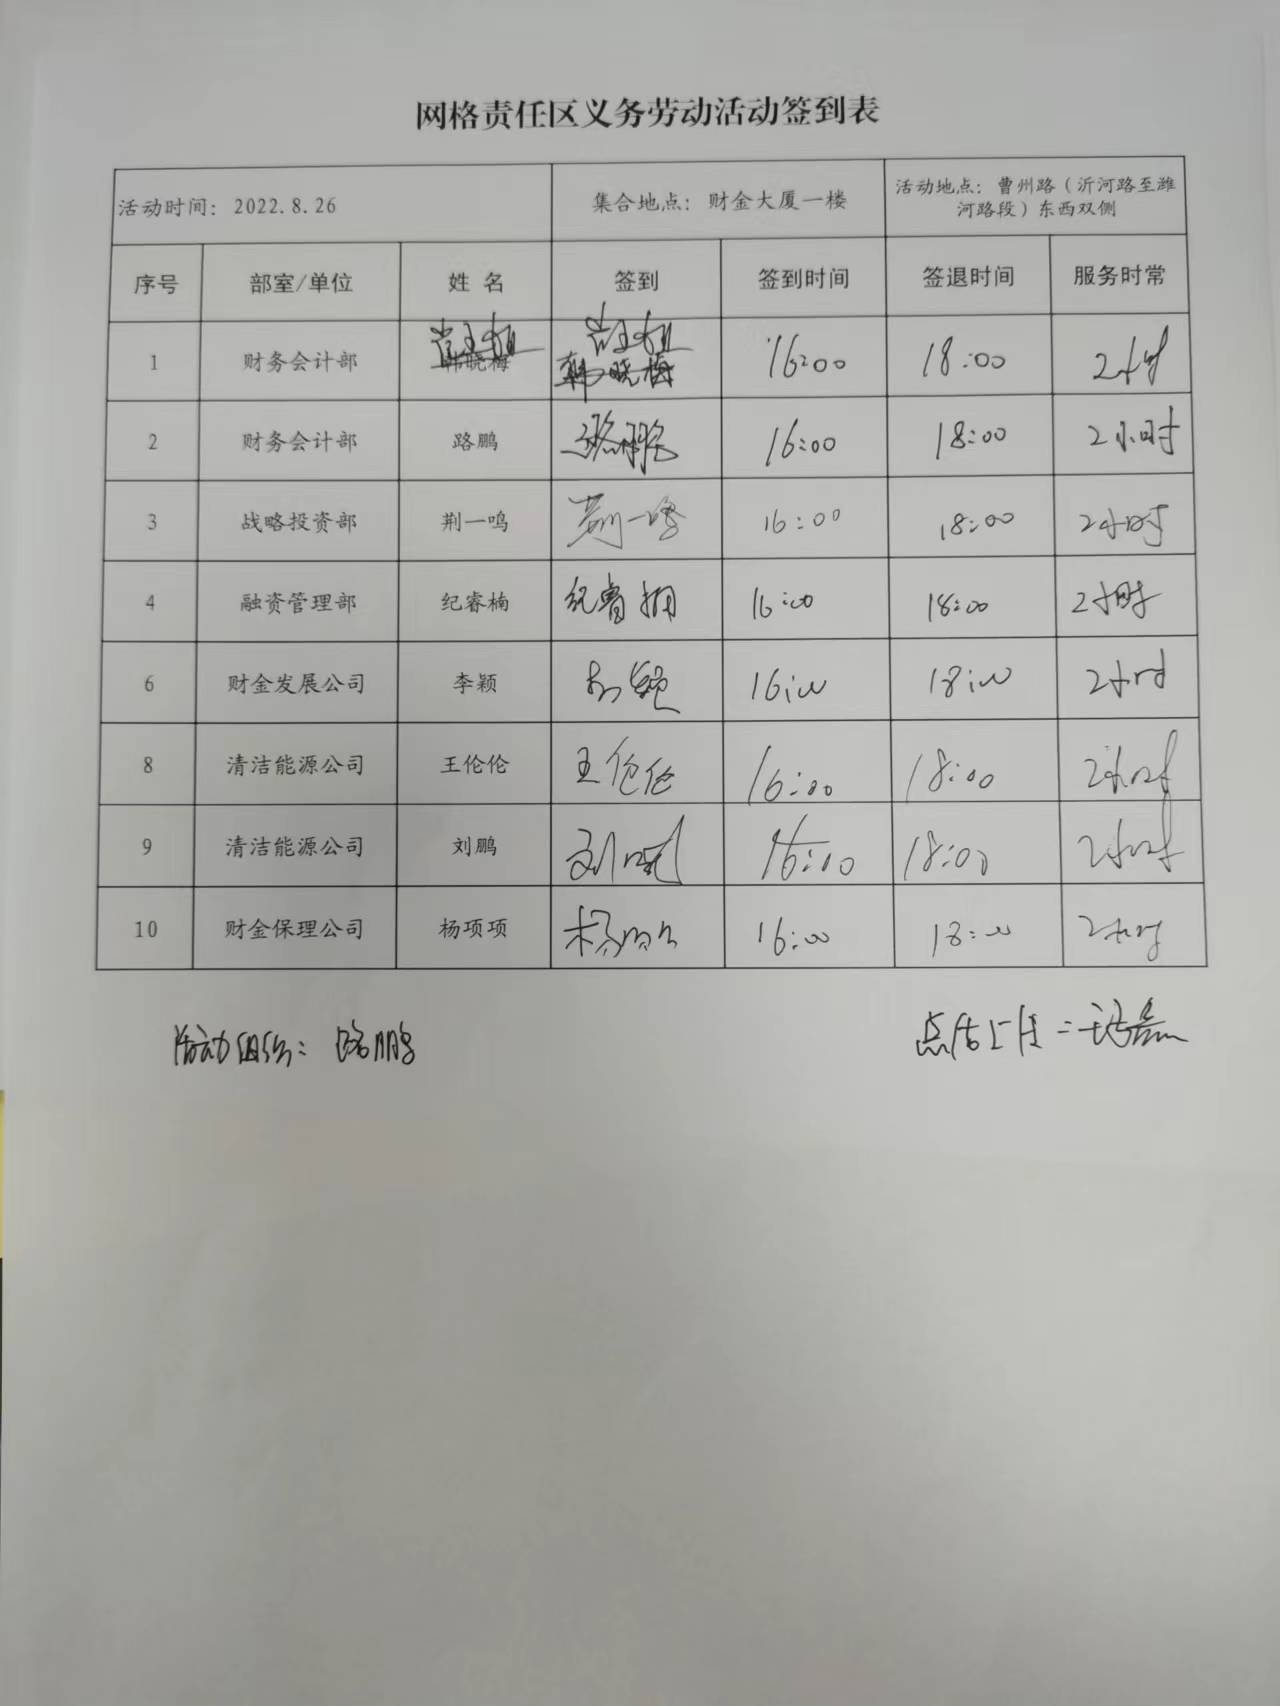 网格责任区义务劳动活动签到表
活动时间：2022.8.26 集合地点：财金大厦一楼 活动地点：曹州路（沂河路至潍
河路段）东西双侧
序号 部室/单位 姓 名 签到 签到时间 签退时间 服务时常
1 财务会计部 韩晓梅 韩晓梅 16:00 18:00 2小时
2 财务会计部 路鹏 路鹏 16:00 18:00 2小时
3 战略投资部 荆一鸣 荆一鸣 16:00 18:00 2小时
4 融资管理部 纪睿楠 纪睿楠 16:00 18:00 2小时
6 财金发展公司 李颖 李颖 16:00 18:00 2小时
8 清洁能源公司 王伦伦 王伦伦 16:00 18:00 2小时
9 清洁能源公司 刘鹏 刘鹏 16:00 18:00 2小时
10 财金保理公司 杨项项 杨项项 16:00 18:00 2小时
活动组织：路鹏